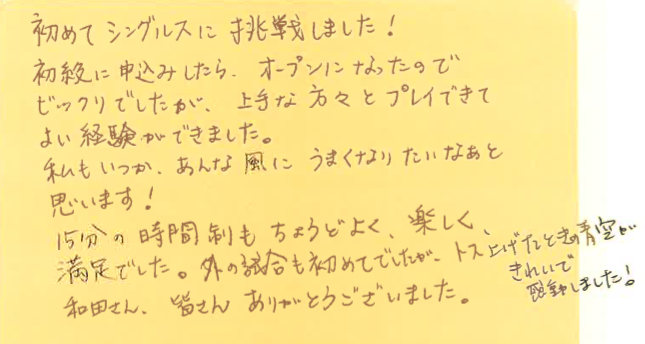 初めてシングルスに挑戦しました！
初級に申込みしたら、オープンになったので
ビックリでしたが、上手な方々とプレイできて
よい経験ができました。
私もいつか、あんな風にうまくなりたいなあと
思います！
15分の時間制もちょうどよく、楽しく、
満足でした。外の試合も初めてでしたが、トス上げたときの青空が
きれいで
感動しました！
和田さん、皆さんありがとうございました。